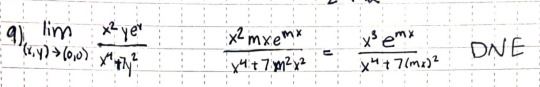 9) lim (x,y)→(0,0) x² y eʸ / x⁴+7y²    x² mx e^mx / x⁴+7m²x² = x³ e^mx / x⁴+7(mx)²    DNE